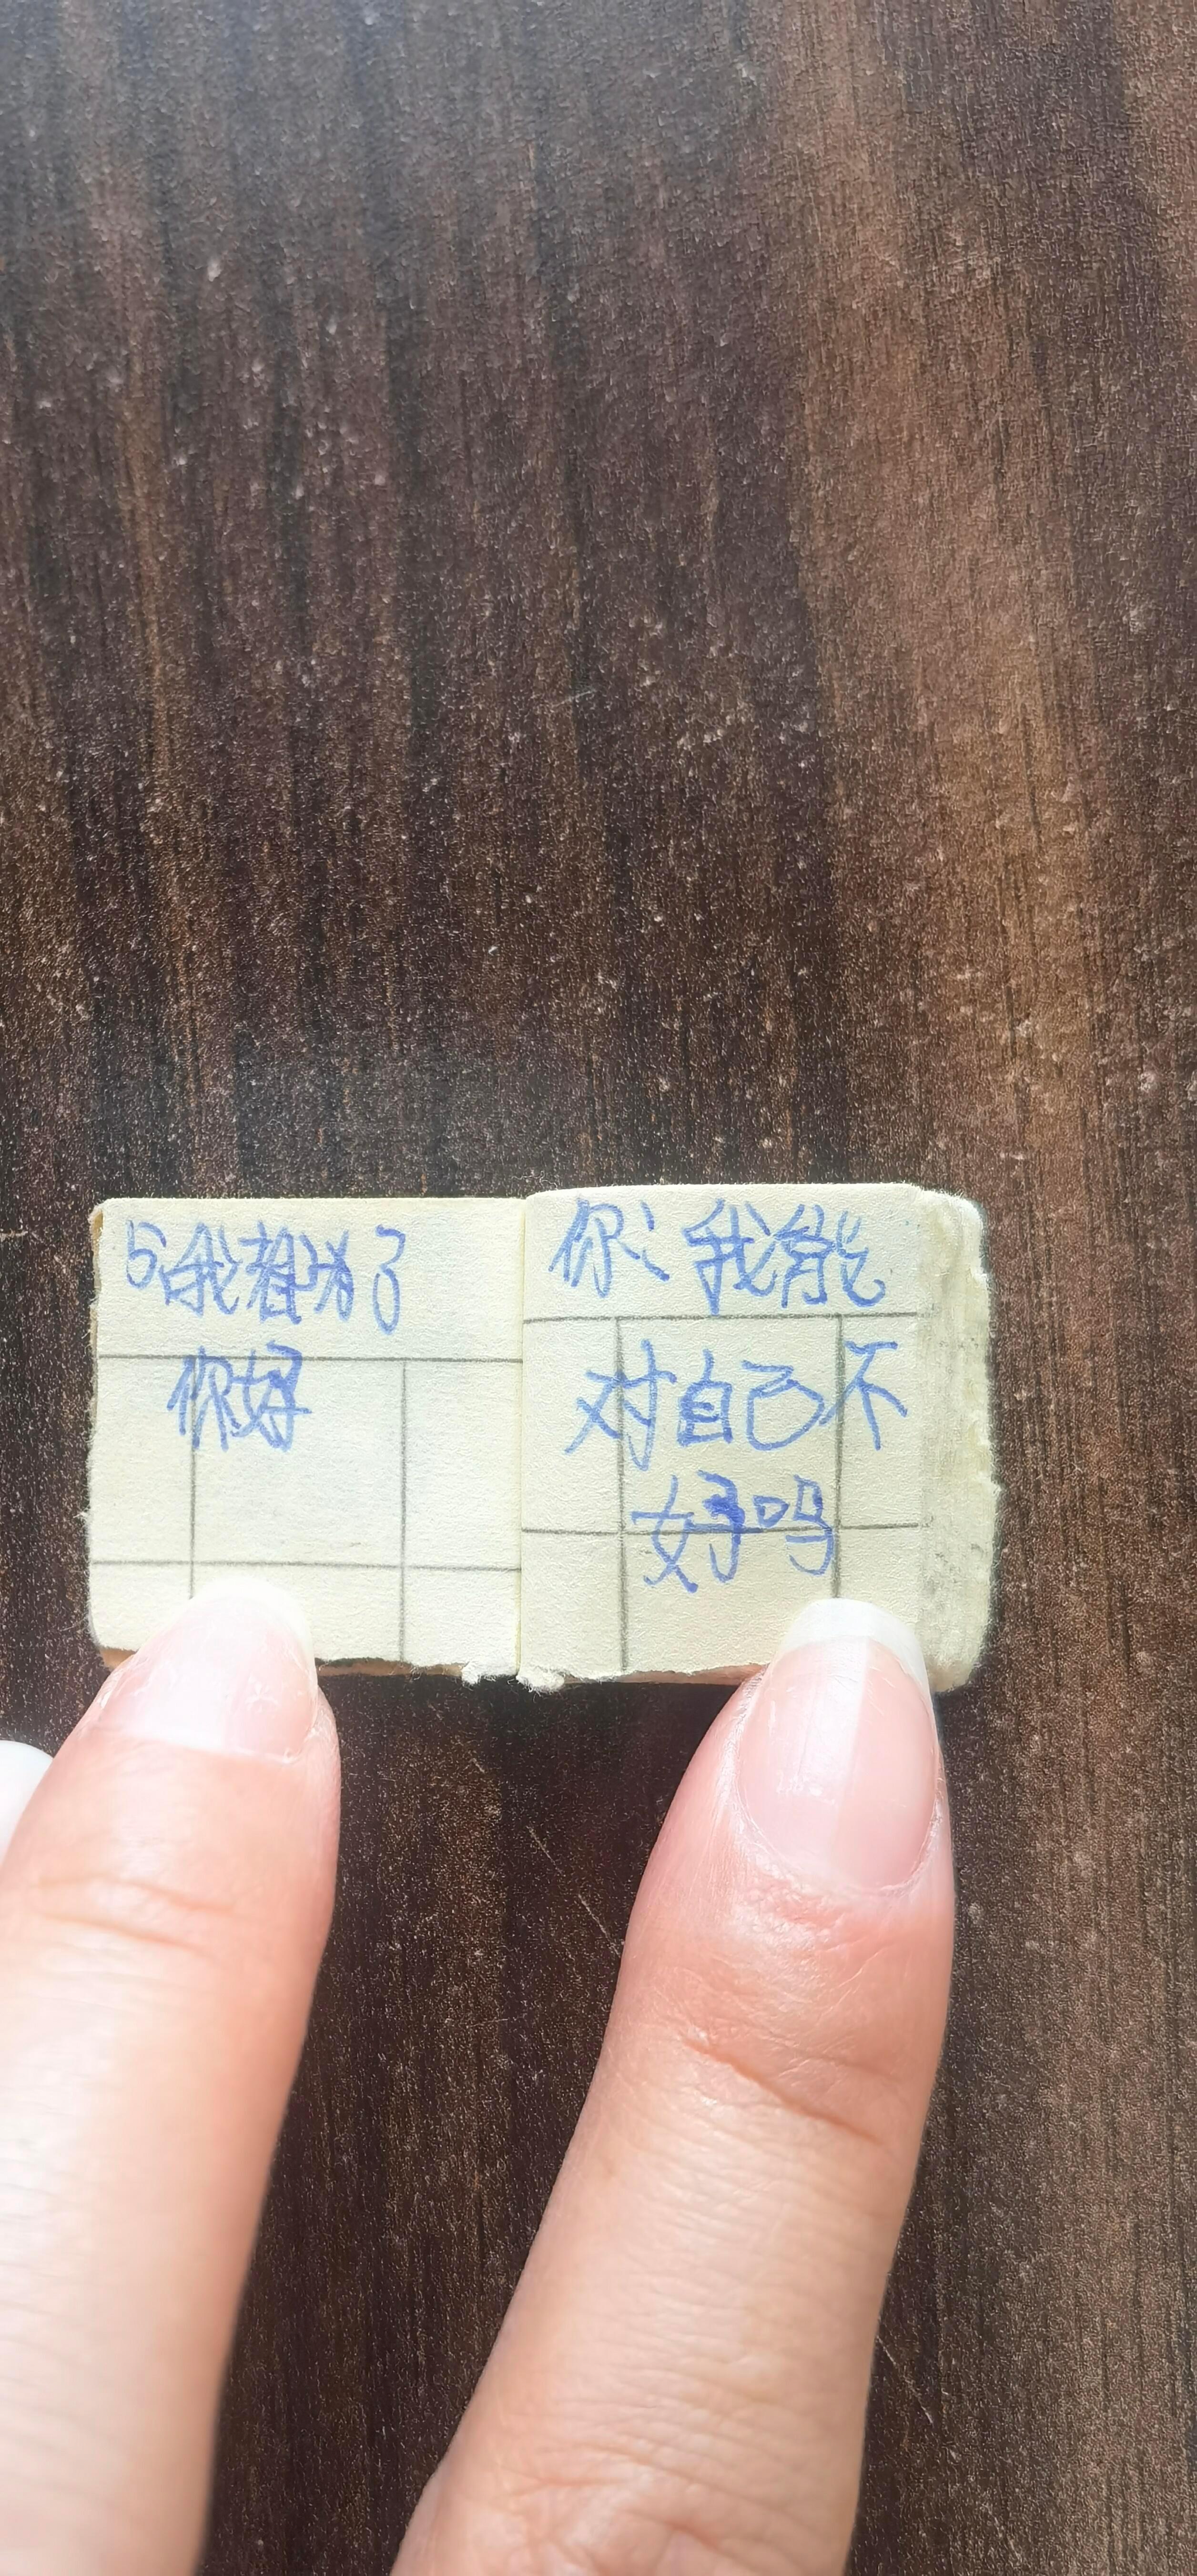 5:我都为了
你好
你:我能
对自己不
好吗